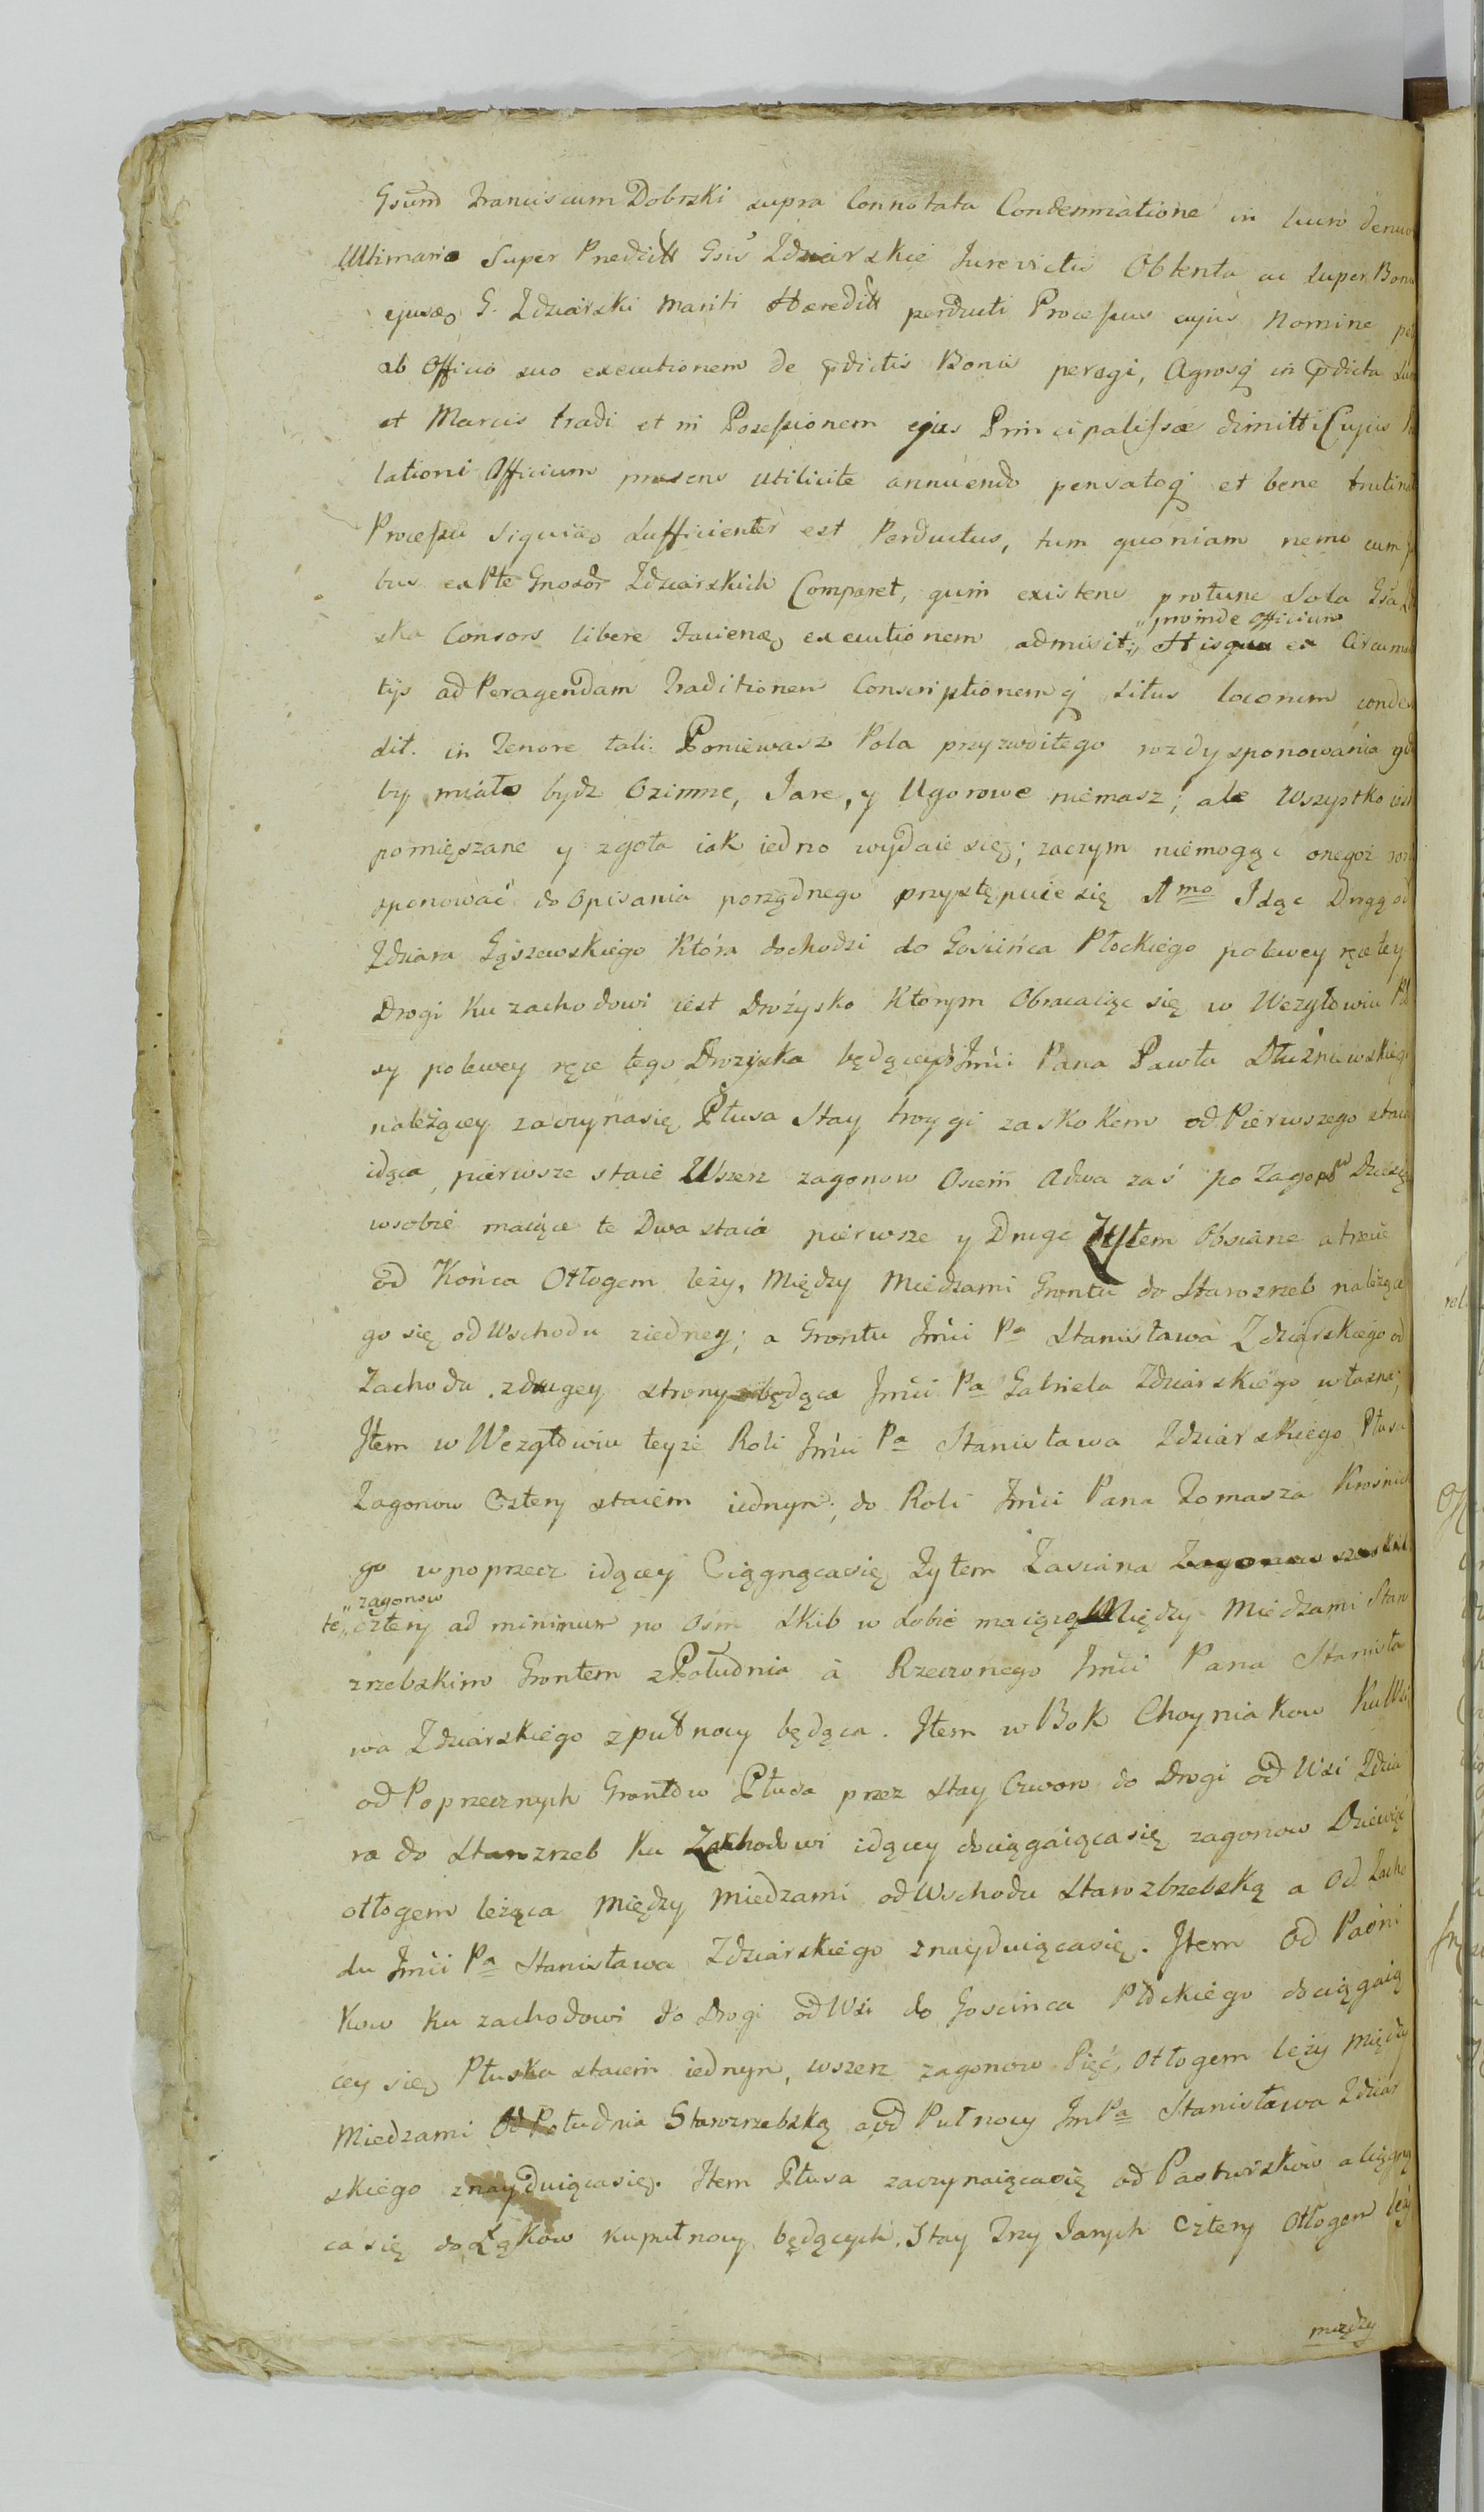 Gsum Franciscum Dobrski supra Connotata Condemnatione in lucro denuo
Ultimario Super Prædictt Gsis Zdziarskie Jurevictis Obtenta ac super Bonis
ejusdo G. Zdziarski Mariti Hæreditt perducti Processus cujus Nomine
ab Officio suo executionem de pdictis Bonis peragi, Agrosq in pdicta
et Marcis tradi et in Possessionem ejus Principalissæ dimitti Cujus
lationi Officium præsens utilicite annuendo pensatoq et bene trutinato
Processu siquido sufficienter est Perductus, tum quoniam nemo cum
bus ex Pte Gnosor Zdziarskich Comparet, quin existens protunc Sola Gsa
ska Consors libere Faciendo executionem admisit; „proinde Officium Hisque ex Circum
tys ad Peragendam Traditionem Conscriptionemq situs locorum conde
dit. in Tenore tali. Poniewasz Pola przyzwoitego rozdysponowania gd
by miało bydz Ozimne, Jare, y Ugorowe niemasz; ale Wszystko iest
pomięszane y zgoła iak iedno wydaie się; zaczym niemogąc onegoż roz
sponować do opisania porządnego przystępuie się Amo Idąc Drogą od
Zdziara Gąszewskiego która dochodzi do Gościńca Płockiego polewey ręce tey
Drogi Ku zachodowi iest Drożysko którym Obracaiąc się w Wezgłowiu
sy polewey ręce tego Drożyska będącey Jmci Pana Pawła Dłużniewskiego
należącey zaczynasię Płusa Stay troygi zaskokem od Pierwszego staia
idąca, pierwsze staie Wszerz zagonow Osiem a dwa zaś po Zagonow Dziesię
wsobie maiące te Dwa staia pierwsze y Drugie Żytem Obsiane a trzecie
od Końca Otłogem leży, Między Miedzami Grontu do Starozrzeb należące
go się od Wschodu ziedney; a Grontu Jmci Pa Stanisława Zdziarskiego od
Zachodu zdrugey strony będąca Jmci Pa Gabriela Zdziarskiego własna;
Item w Wezgłowiu teyże Roli Jmci Pa Stanisława Zdziarskiego Płusa
Zagonow Cztery staiem iednym; do Roli Jmci Pana Tomasza Krośnic
go wpoprzecz idącey Ciągnącasię Żytem Zasiana Zagonow
te „zagonow cztery ad minimum po ośm Skib w sobie maiące Między Miedzami Staro
zrzebskim Grontem z Południa a Rzeczonego Jmci Pana Stanisła
wa Zdziarskiego z pułnocy będąca. Item w Bok Choyniakow Ku Wsi
od Poprzecznych Grontow Płusa przez Stay Czworo do Drogi od Wsi Zdzia
ra do Starozrzeb Ku Zachodowi idącey dociągaiącasię zagonow Dziewięć
otłogem leżąca Między Miedzami od Wschodu Starozbrzebską a Od Zacho
du Jmci Pa Stanisława Zdziarskiego znayduiącasię. Item od Paśni
kow Ku zachodowi do Drogi od Wsi do Gościńca Płockiego dociągaią
cey się Płuska staiem iednym, wszerz zagonow Pięć, Otłogem leży między
Miedzami Od Południa Starozrzebską a od Pułnocy Jm Pa Stanisława Zdziar
skiego znayduiącasię. Item Płusa zaczynaiącasię od Pastwiskow a ciągną
ca się do Łąkow Ku pułnocy będących. Stay Trzy Janych cztery Otłogem leży
między